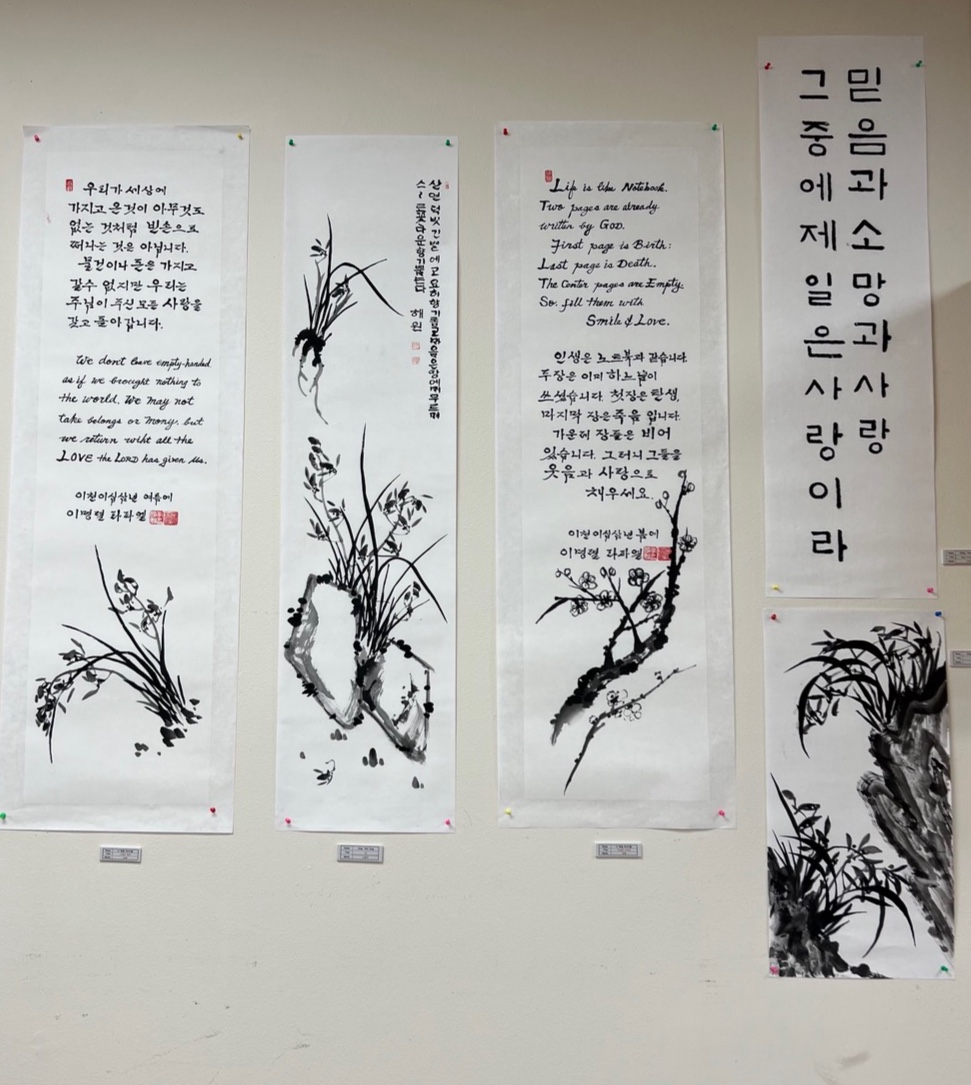 우리가 세상에
가지고 온것이 아무것도
없는 것처럼 빈손으로
떠나는 것은 아닙니다.
물건이나 돈은 가지고
갈수 없지만 우리는
주님이 주신 모든 사랑을
갖고 돌아 갑니다.
We don't leave empty-handed
as if we brought nothing to
the world. We may not
take belongs or mony, but
we return wiht all the
LOVE the LORD has given us.
이천이십삼년 여름에
이명렬 라파엘
해원
Life is like Notebook.
Two pages are already
written by God.
First page is Birth:
Last page is Death.
The Center pages are Empty.
So, fill them with
Smile & Love.
인생은 노트북과 같습니다.
두장은 이미 하느님이
쓰셨습니다. 첫장은 탄생,
마지막 장은 죽음 입니다.
가운데 장들은 비어
있습니다. 그러니 그들을
웃음과 사랑으로
채우세요.
이천이십삼년 봄에
이명렬 라파엘
믿음과소망과사랑
그중에제일은사랑이라